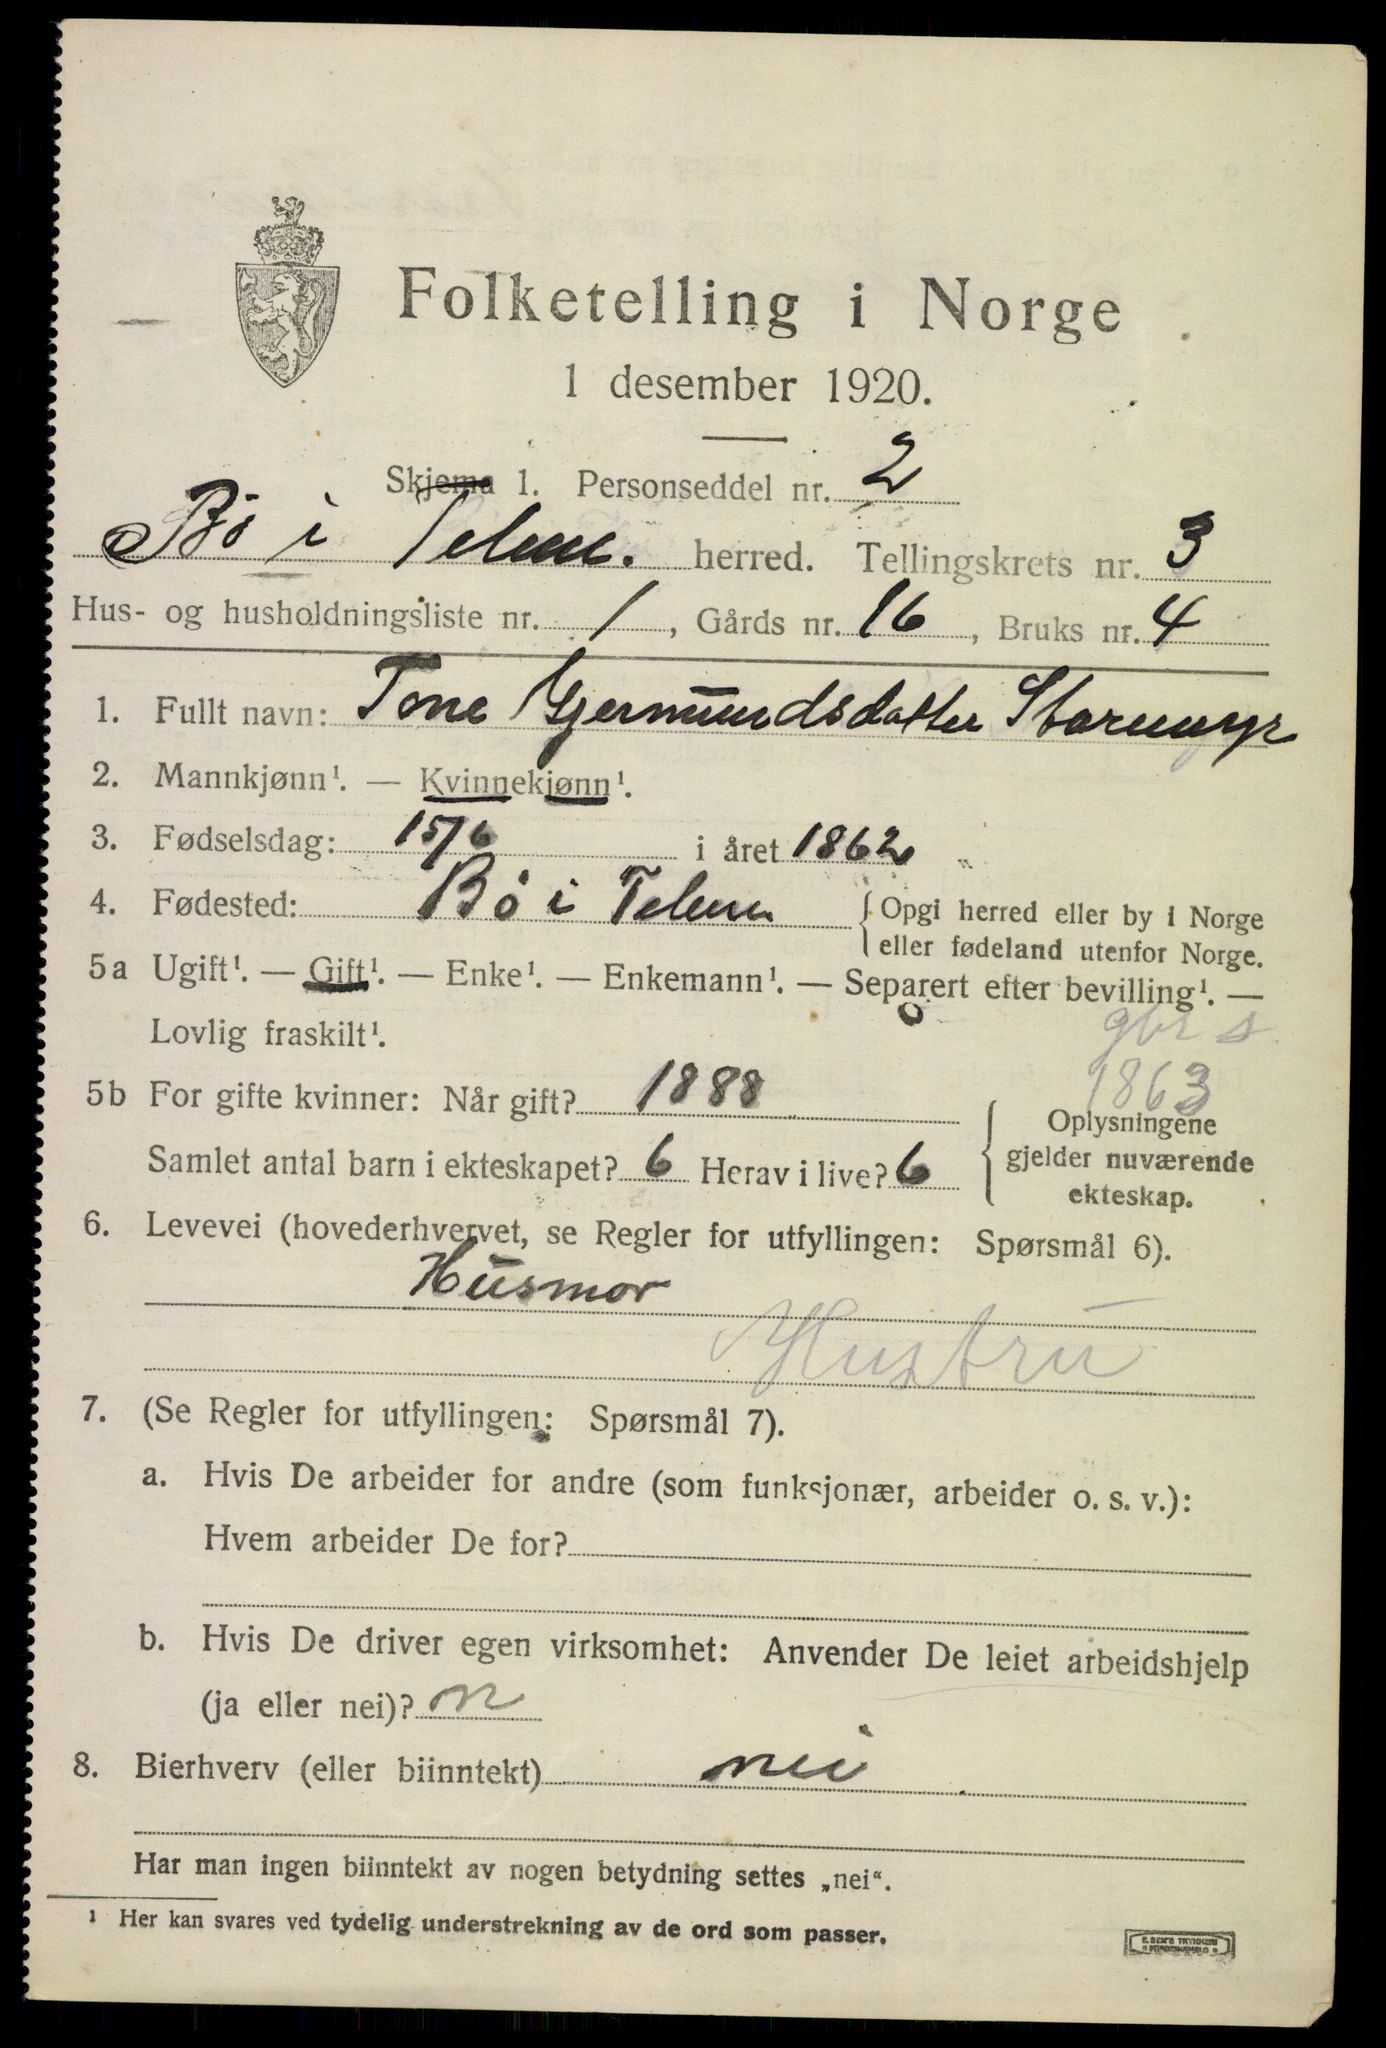 Folketelling i Norge
1 desember 1920.
Skjema 1. Personseddel nr. 2
Bö i Telem. herred. Tellingskrets nr. 3
Hus- og husholdningsliste nr. 1, Gårds nr. 16, Bruks nr. 4
1. Fullt navn: Tone Gjermundsdatter
2. Mannkjønn¹. — Kvinnekjønn¹.
3. Fødselsdag: 15/6 i året 1862
4. Fødested: Bö i Telem {Opgi herred eller by i Norge
eller fødeland utenfor Norge.
5a Ugift¹. — Gift¹. — Enke¹. — Enkemann¹. — Separert efter bevilling¹. —
Lovlig fraskilt¹.
gbr s
1863
5b For gifte kvinner: Når gift? 1888
Samlet antal barn i ekteskapet? 6 Herav i live? 6
{Oplysningene
gjelder nuværende
ekteskap.
6. Levevei (hovederhvervet, se Regler for utfyllingen: Spørsmål 6).
Husmor
Hustru
7. (Se Regler for utfyllingen: Spørsmål 7).
a. Hvis De arbeider for andre (som funksjonær, arbeider o. s. v.):
Hvem arbeider De for?
b. Hvis De driver egen virksomhet: Anvender De leiet arbeidshjelp
(ja eller nei)? n
8. Bierhverv (eller biinntekt) nei
Har man ingen biinntekt av nogen betydning settes „nei“.
¹ Her kan svares ved tydelig understrekning av de ord som passer.